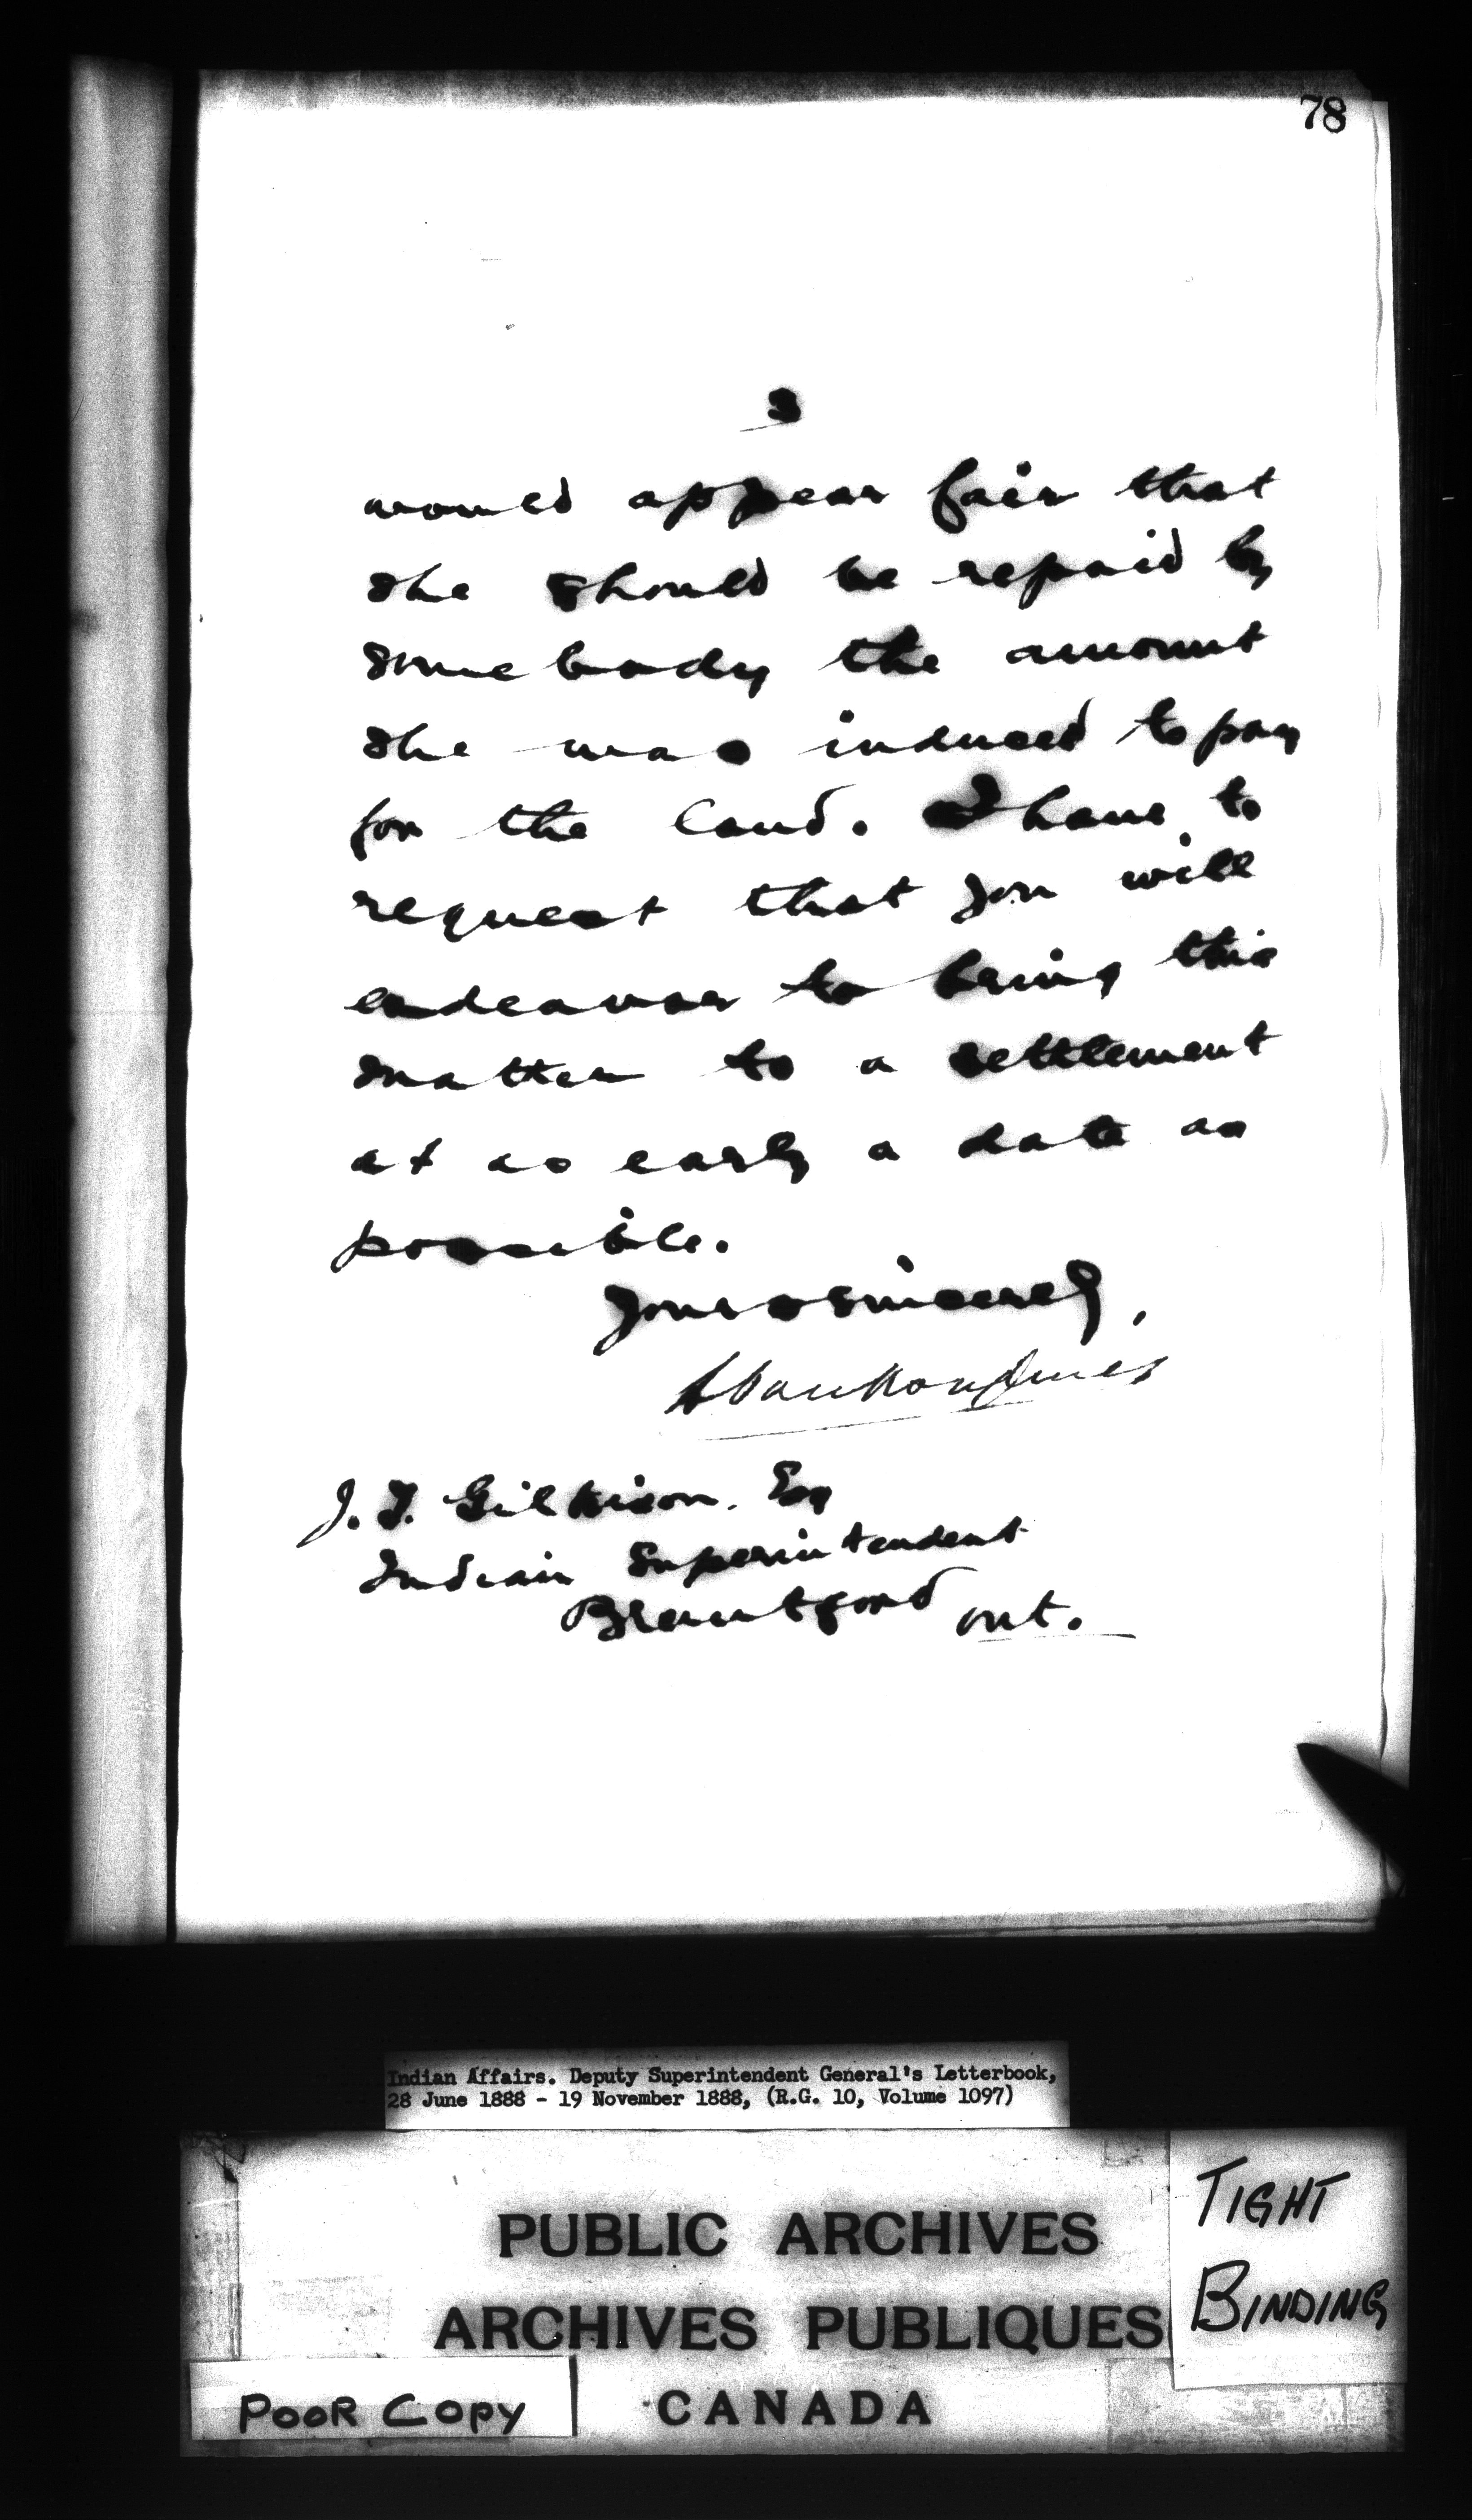 78
3
would appear fair that
she should be repaid by
somebody the amount
she was induced to pay
for the land. I have to
request that you will
endeavor to bring this
matter to a settlement
at as early a date as
possible.
Yours sincerely,
L Vankoughnet
J. T. Gilkison. Esq
Indian Superintendent
Brantford Ont.
Indian Affairs. Deputy Superintendent General's Letterbook,
28 June 1888 - 19 November 1888, (R.G. 10, Volume 1097)
PUBLIC ARCHIVES
ARCHIVES PUBLIQUES
CANADA
TIGHT
BINDING
POOR COPY